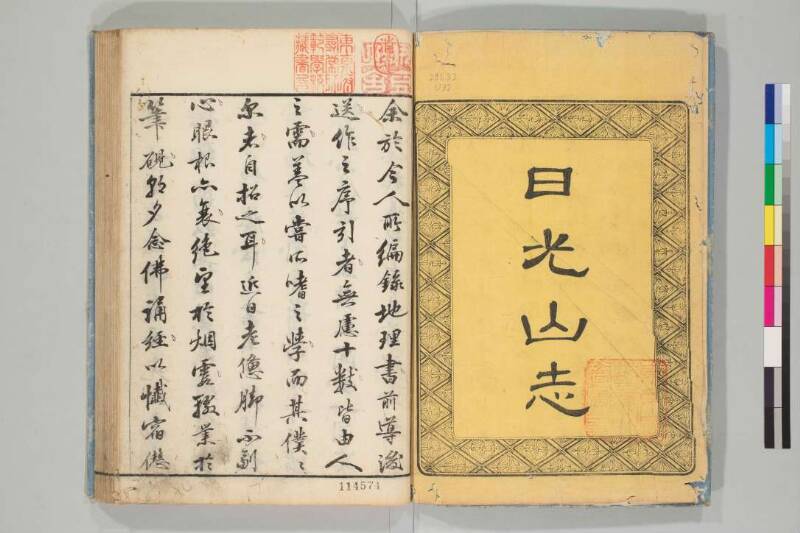 日光山志
余於今人所編錄地理書前導後
送作之序引者無慮十數皆由人
之需蓋以嘗所嗜之學而其僕々
尓者自招之耳近日老憊脚不副
心眼根亦衰絶望於烟雲
業於
筆硯朝夕念佛誦經以懺宿
114574